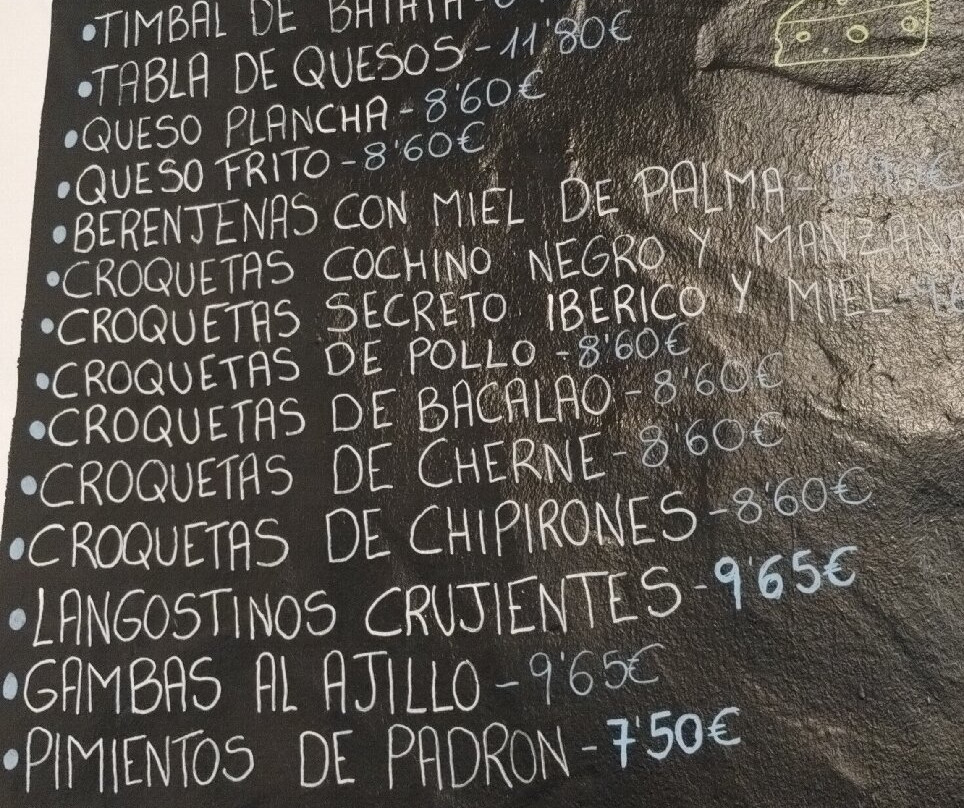 •TIMBAL DE BATATA-
•TABLA DE QUESOS-11'80€
•QUESO PLANCHA-8'60€
•QUESO FRITO-8'60€
•BERENJENAS CON MIEL DE PALMA-
•CROQUETAS COCHINO NEGRO Y
•CROQUETAS SECRETO IBERICO Y MIEL-
•CROQUETAS DE POLLO-8'60€
•CROQUETAS DE BACALAO-8'60€
•CROQUETAS DE CHERNE-8'60€
•CROQUETAS DE CHIPIRONES-8'60€
•LANGOSTINOS CRUJIENTES-9'65€
•GAMBAS AL AJILLO-9'65€
•PIMIENTOS DE PADRON-7'50€